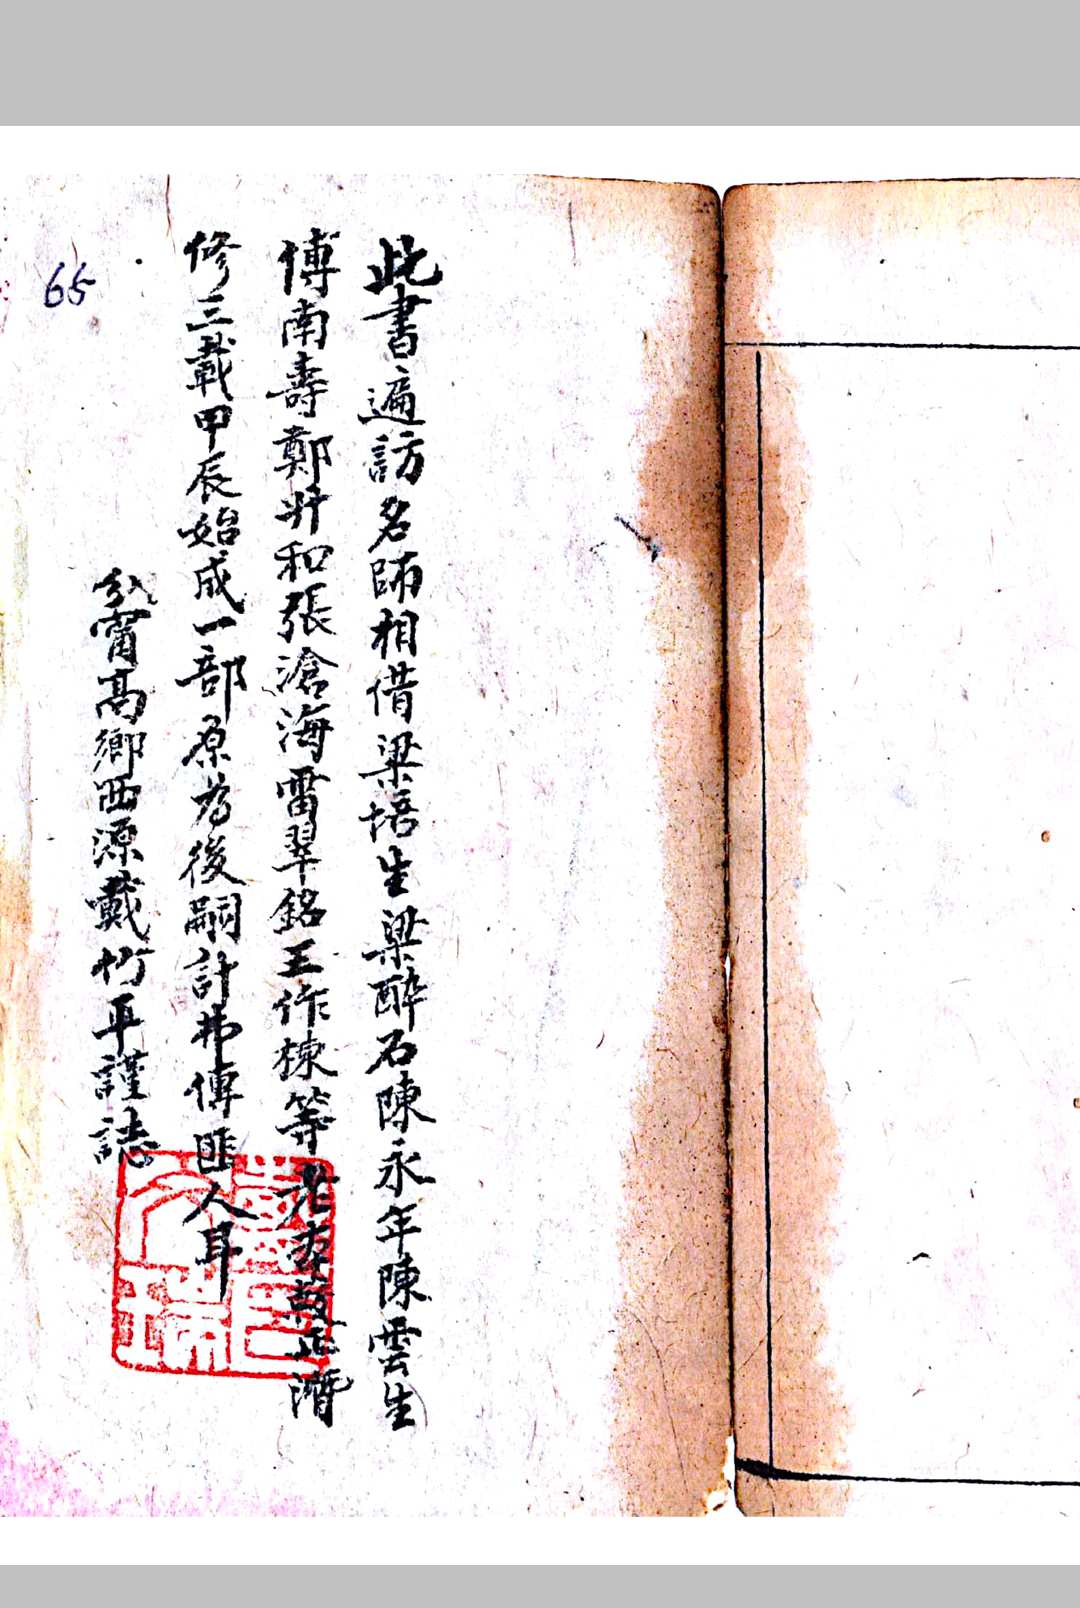 此書遍訪名師相借梁培生梁醉石陳永年陳雲生
傅南壽鄭𣂏和張滄海雷翠銘王作棟等老夲敨正潛
修三載甲辰始成一部原為後嗣計弗傳匪人耳
分甯高鄉西源戴竹平謹誌
65